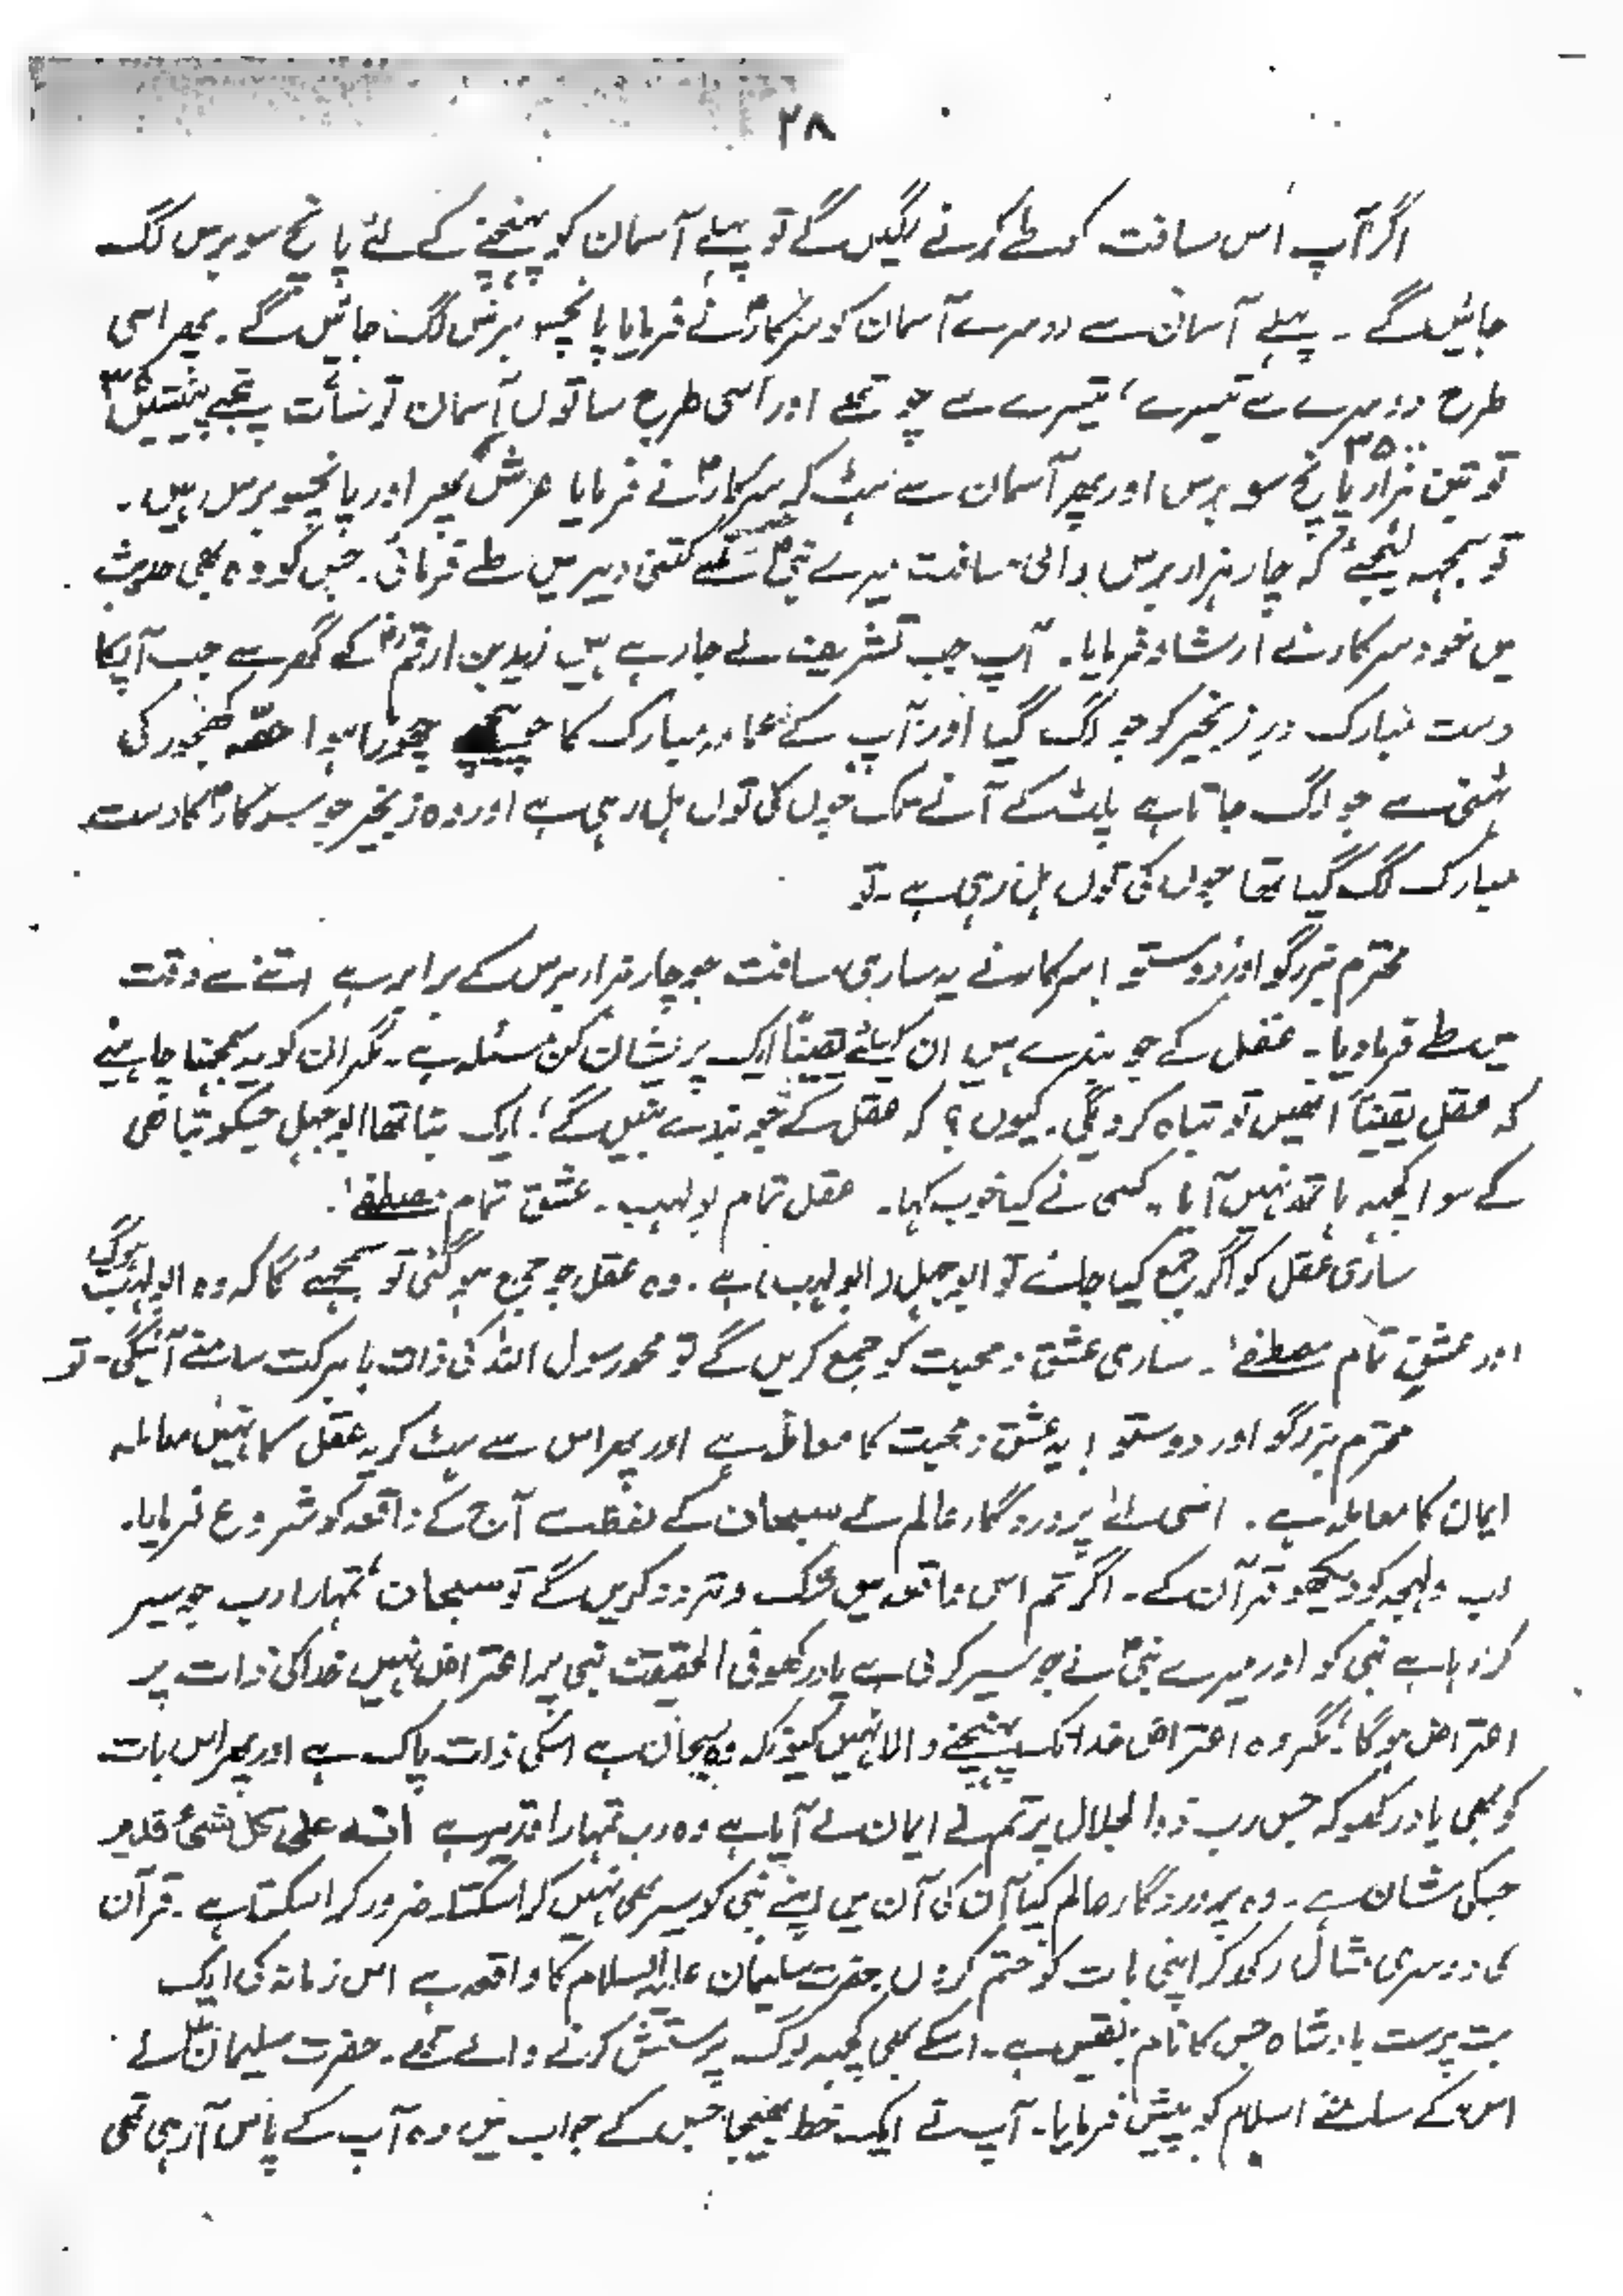 ۲۸
اگر آپ اس مسافت کو طے کرنے لگیں گے تو پہلے آسمان کو پہنچنے کے لئے پانچ سو برس لگ
جائیں گے ۔ پہلے آسمان سے دوسرے آسمان کو سرکارؐ نے فرمایا پانچسو برس لگ جائیں گے ۔ پھر اسی
طرح دوسرے سے تیسرے، تیسرے سے چوتھے اور اسی طرح ساتوں آسمان تو سات پنجے پینتیس ۳۵
۳۵۰۰
تو تین ہزار پانچ سو برس اور پھر آسمان سے ہٹ کر سرکارؐ نے فرمایا عرش پھر اور پانچسو برس ہیں ۔
تو سمجھ لیجئے کہ چار ہزار برس والی مسافت میرے نبیؐ نے کتنی دیر میں طے فرمائی ۔ جس کو وہ بھی حدیث
میں خود سرکار نے ارشاد فرمایا ۔ آپ جب تشریف لے جا رہے ہیں زید بن ارقمؓ کے گھر سے جب آپکا
دست مبارک در زنجیر کو جو لگ گیا اور آپ کے عمامہ مبارک کا جو پیچھے چھوڑا ہوا حصّہ کھجور کی
ٹہنی سے جو لگ جاتا ہے پلٹ کے آنے تک جوں کی توں ہل رہی ہے اور وہ زنجیر جو سرکارؐ کا دست
مبارک لگ گیا تھا جوں کی توں ہل رہی ہے ۔ تو
محترم بزرگو اور دوستو ! سرکار نے یہ ساری مسافت جو چار ہزار برس کے برابر ہے اتنے سے وقت
میں طے فرما دیا ۔ عقل کے جو بندے ہیں ان کیلئے یقیناً ایک پریشان کن مسئلہ ہے ۔ مگر ان کو یہ سمجھنا چاہیئے
کہ عقل یقیناً انھیں تو تباہ کر دیگی ۔ کیوں ؟ کہ عقل کے جو بندے بنیں گے ! ایک بنا تھا ابوجہل جسکو تباہی
کے سوا کچھ ہاتھ نہیں آیا ۔ کسی نے کیا خوب کہا ۔ عقل تمام بولہب ۔ عشق تمام مصطفےٰ ۔
ساری عقل کو اگر جمع کیا جائے تو ابوجہل (ابولہب) ہے ۔ وہ عقل جو جمع ہو گئی تو سمجھئے گا کہ وہ ابولہب ہوگی
اور عشق تمام مصطفےٰ ۔ ساری عشق و محبت کو جمع کریں گے تو محمد رسول اللہ کی ذات با برکت سامنے آئیگی ۔ تو
محترم بزرگو اور دوستو ! یہ عشق و محبت کا معاملہ ہے اور پھر اس سے ہٹ کر یہ عقل کا نہیں معاملہ
ایمان کا معاملہ ہے ۔ اسی لئے پروردگار عالم نے سبحان کے لفظ سے آج کے واقعہ کو شروع فرمایا ۔
لب و لہجہ کو دیکھو قرآن کے ۔ اگر تم اس واقعہ میں شک و تردد کریں گے تو سبحان، تمہارا رب جو سیر
کرا رہا ہے نبی کو اور میرے نبیؐ نے جو سیر کری ہے یاد رکھو فی الحقیقت نبی پر اعتراض نہیں خدا کی ذات پر
اعتراض ہوگا، مگر وہ اعتراض خدا تک پہنچنے والا نہیں کیونکہ وہ سبحان ہے اسکی ذات پاک ہے اور پھر اس بات
کو بھی یاد رکھو کہ جس رب ذوالجلال پر تم نے ایمان لے آیا ہے وہ رب تمہارا قدیر ہے انہ علی کل شئ قدیر
جسکی شان ہے ۔ وہ پروردگار عالم کیا آن کی آن میں اپنے نبی کو سیر بھی نہیں کرا سکتا ۔ ضرور کرا سکتا ہے ۔ قرآن
کی دوسری مثال رکھ کر اپنی بات کو ختم کروں حضرت سلیمان علیہ السلام کا واقعہ ہے اس زمانہ کی ایک
بت پرست بادشاہ جس کا نام بلقیس ہے ۔ اسکے بھی کچھ لوگ پرستش کرنے والے تھے ۔ حضرت سلیمانؑ نے
اس کے سامنے اسلام کو پیش فرمایا ۔ آپ نے ایک خط بھیجا جس کے جواب میں وہ آپ کے پاس آ رہی تھی